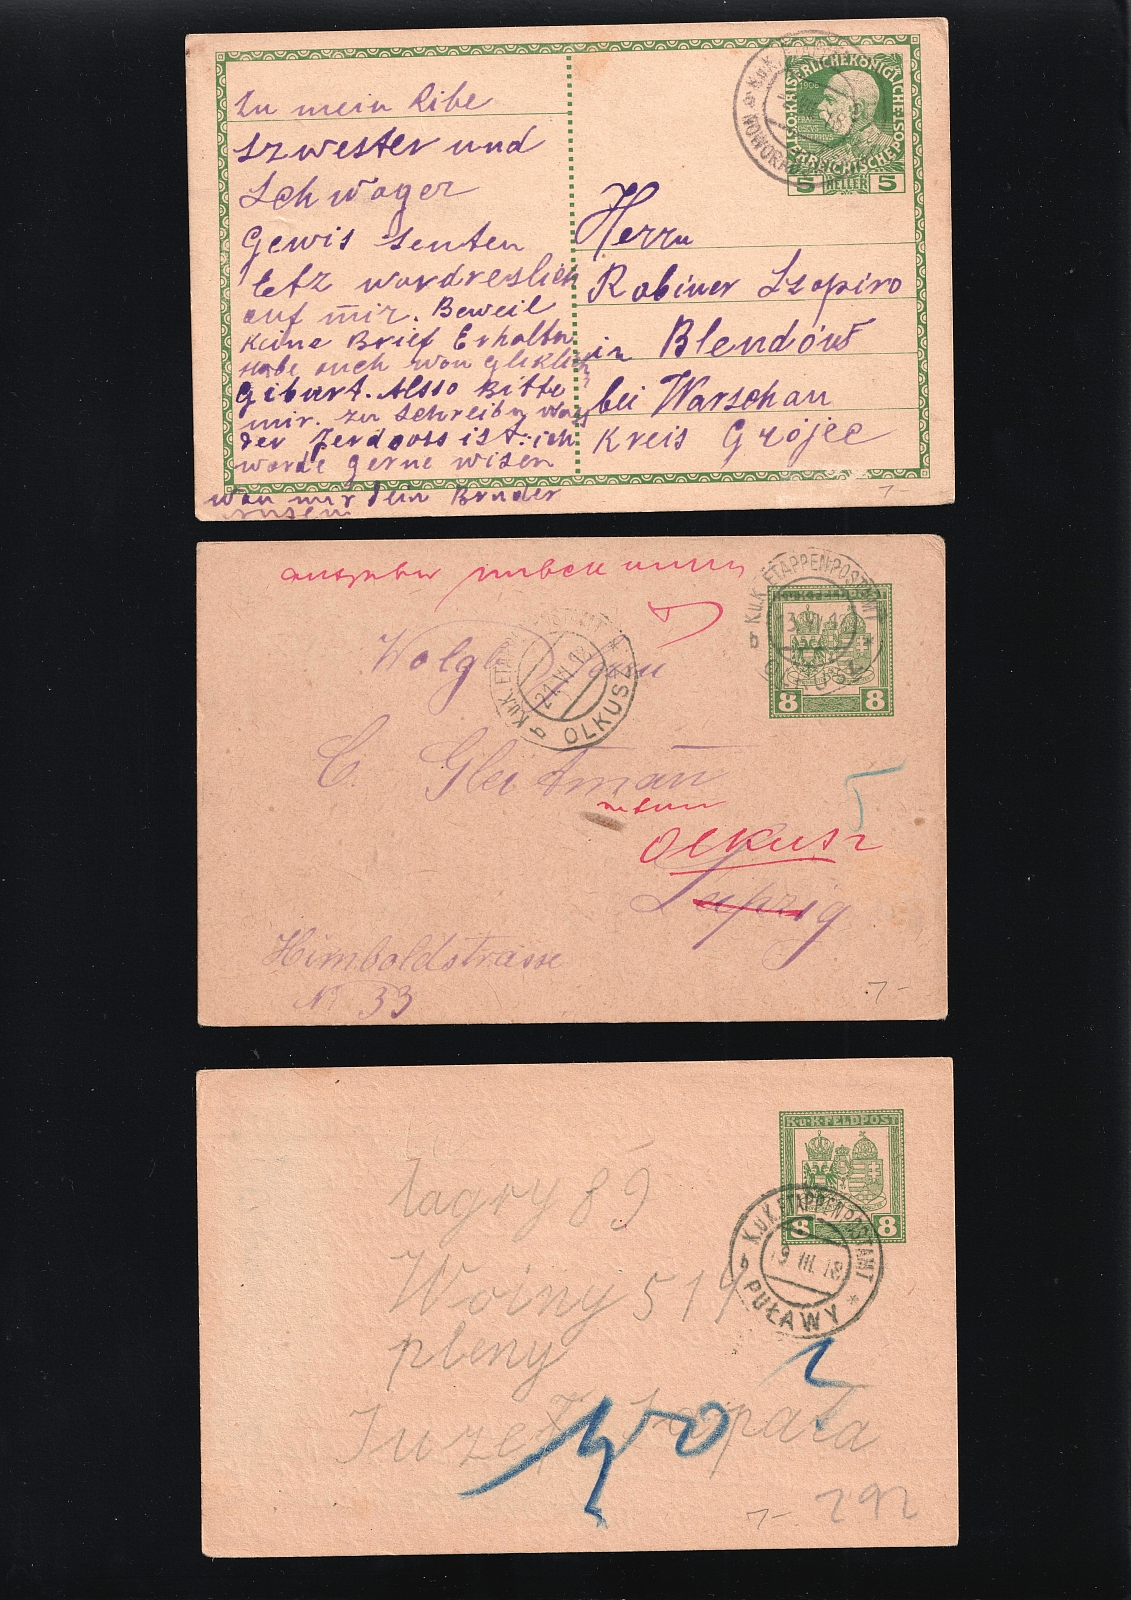 Zu mein Libe
Szwester und
Schwager
Gewis senten
Etz wordreslich
auf mir. Beweil
keine Brief Erhalten
Habe auch won gliklich
Giburt. Alsso Bitte
mir. zu schreiben was
der Jerdooss ist. ich
worde gerne wisen
won mir dein Bruder
K.u.K. ETAPPEN
NOWORA
KAISERLICHEKÖNIGLICHE
ÖSTERREICHISCHE POST
1908
5 HELLER 5
Herrn
Rabiner Szapiro
in Blendów
bei Warschau
Kreis Grojec
7
K.u.K. ETAPPENPOSTAMT
OLKUSZ
K.u.K. FELDPOST
8 8
K.u.K. ETAPPENPOSTAMT
21.VI.18
b OLKUSZ
Wolgb
C. Gleitman
retour
Olkusz
Leipzig
Himboldstrasse
No 33
7-
K.u.K. FELDPOST
8 8
K.u.K. ETAPPENPOSTAMT
9 III. 18
b PUŁAWY *
Łagry 89
Woiny 519
pleny
Juzef Łopata
7-. 292